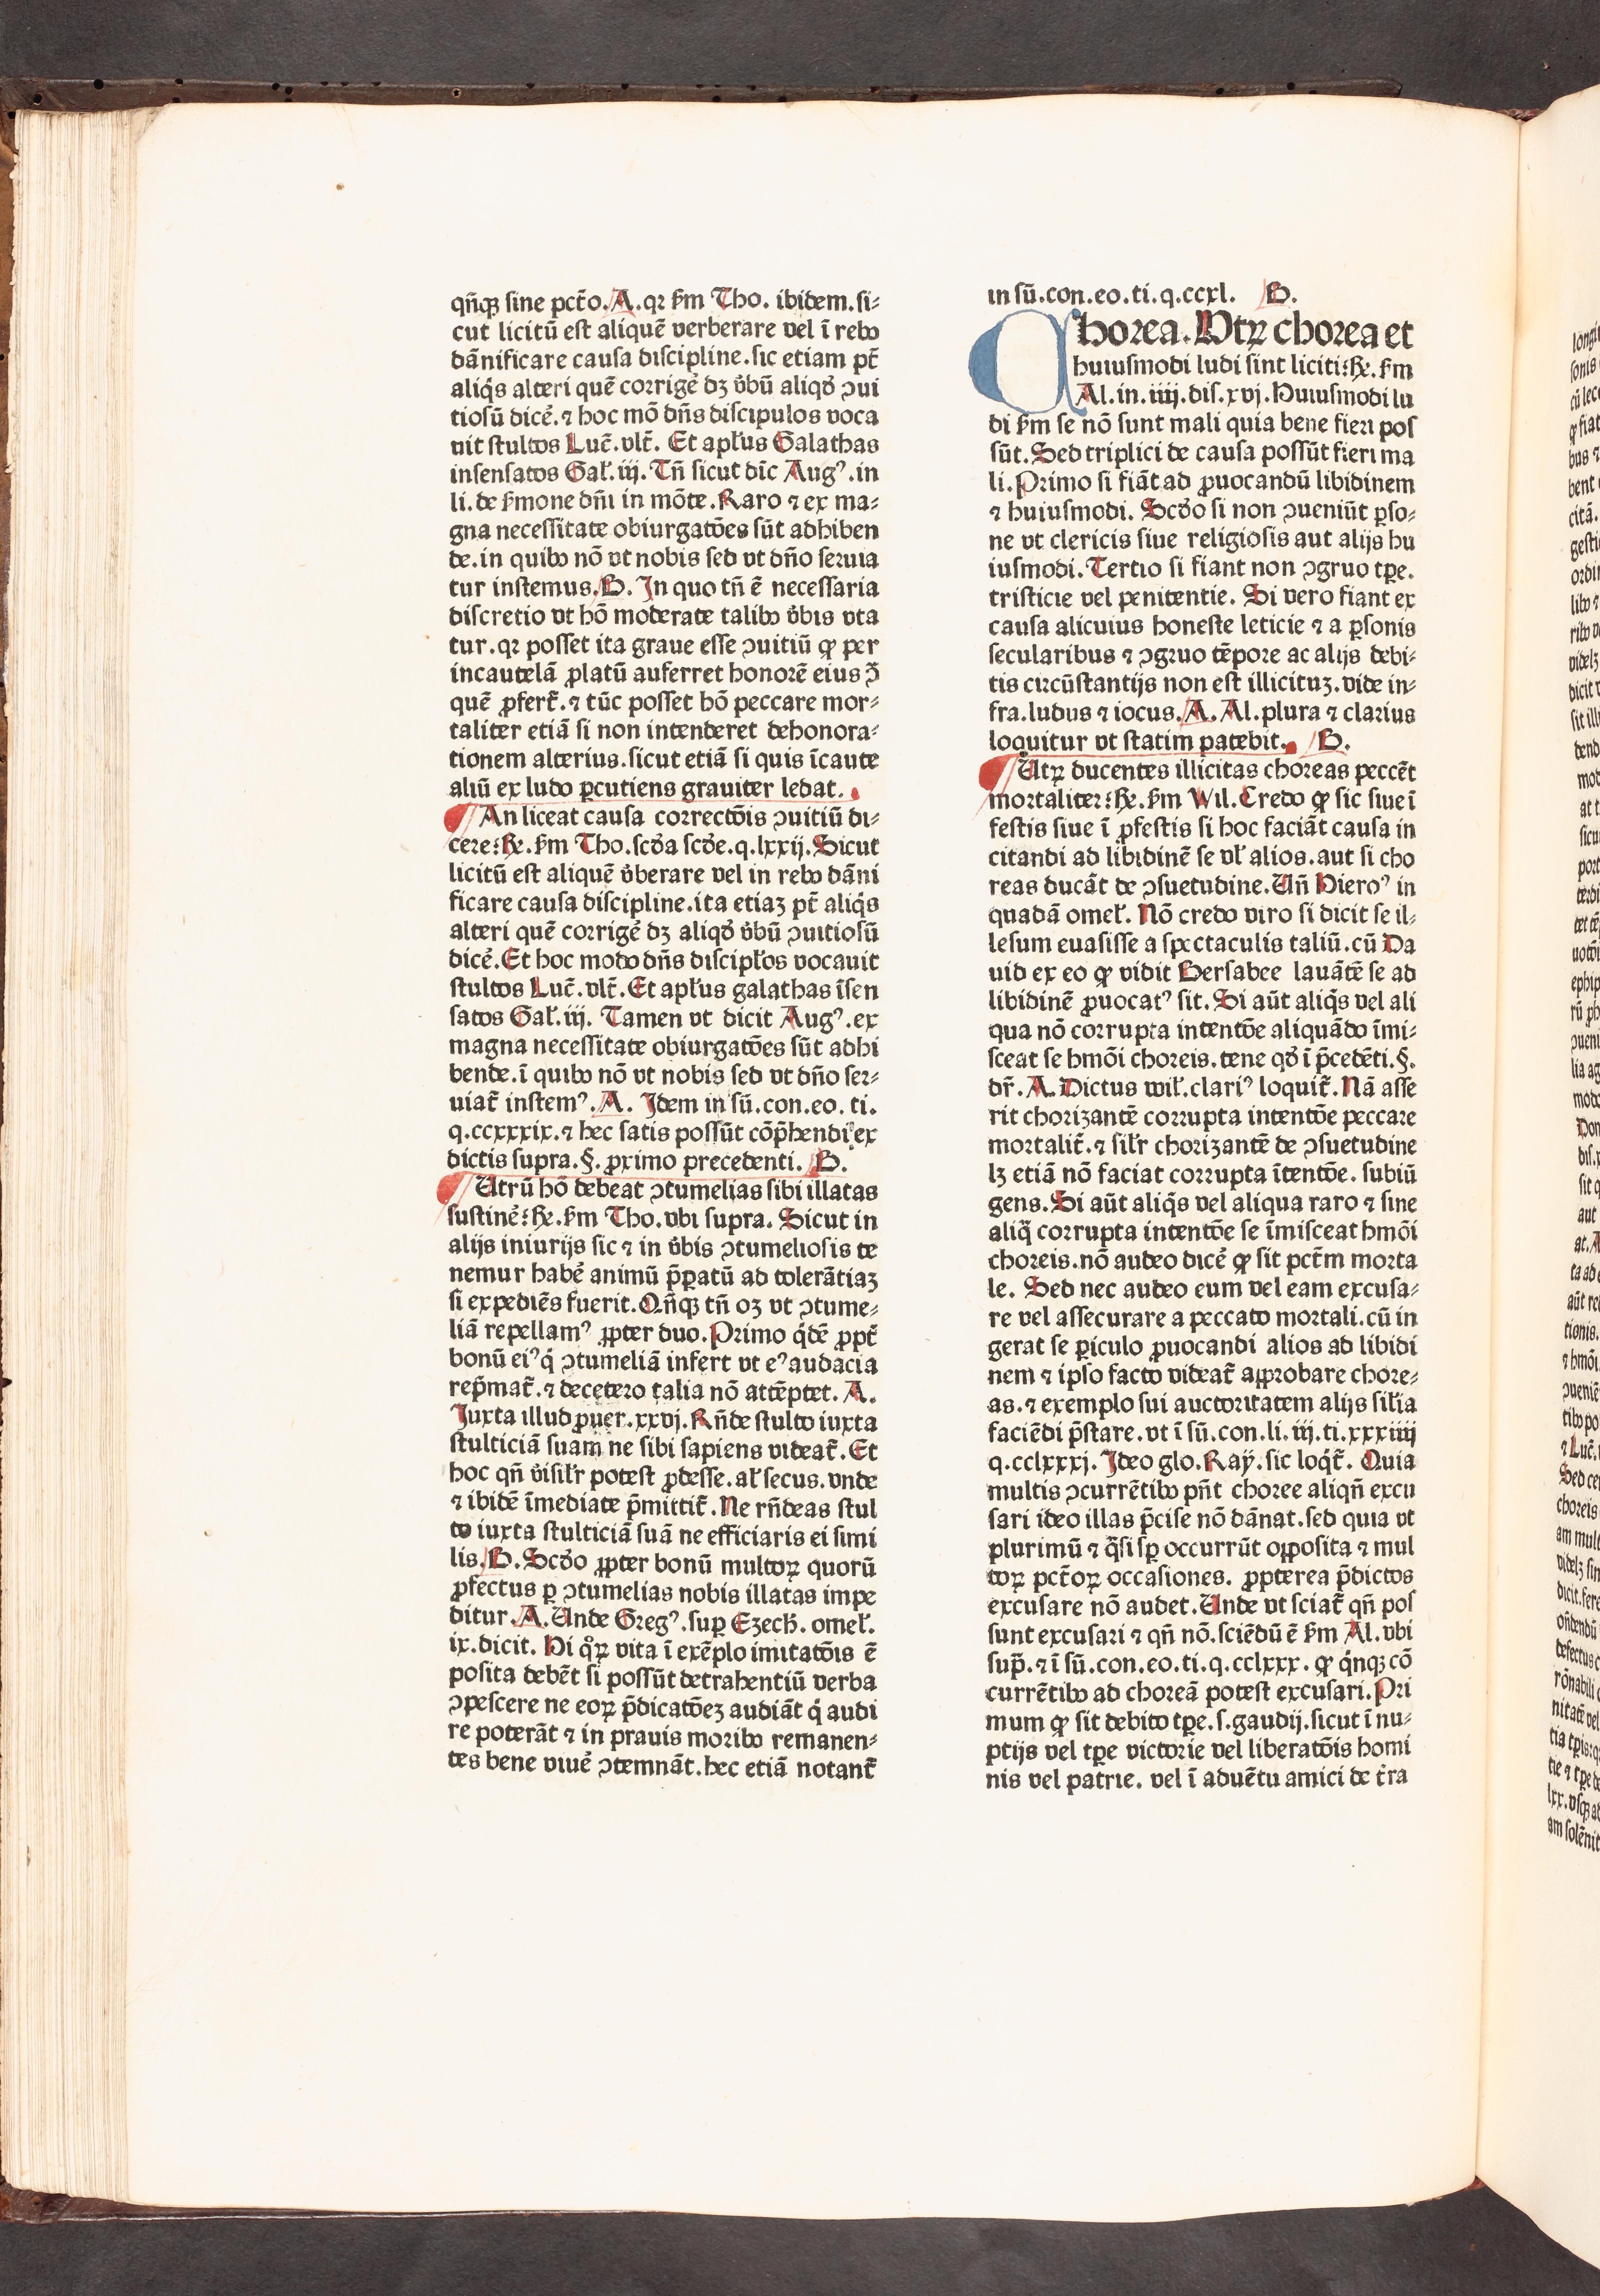 qñqꝫ sine pctō. A. qꝛ ẜm Tho. ibidem. si⸗
cut licitū est aliquē verberare vel ī rebꝰ
dānificare causa discipline. sic etiam pt̄
aliq̇s alteri quē corrigē dꝫ v̓bū aliqđ ꝯui
tiosū dicē. ⁊ hoc mō dn̄s discipulos voca
uit stultos Luc̄. vlt̄. Et apl̓us Galathas
insensatos Gal̓. iij. Tn̄ sicut dīc Augꝰ. in
li. de ẜmone dn̄i in mōte. Raro ⁊ ex ma⸗
gna necessitate obiurgatōes sūt adhiben
de. in quibꝰ nō vt nobis sed vt dn̄o seruia
tur instemus. B. In quo tn̄ ē necessaria
discretio vt hō moderate talibꝰ v̓bis vta
tur. qꝛ posset ita graue esse ꝯuitiū ꝙ per
incautelā ꝓlatū auferret honorē eius ꝯ̄
quē ꝓfert̄. ⁊ tūc posset hō peccare mor⸗
taliter etiā si non intenderet dehonora⸗
tionem alterius. sicut etiā si quis īcaute
aliū ex ludo ꝑcutiens grauiter ledat.
An liceat causa correctōis ꝯuitiū di⸗
cere: ℞. ẜm Tho. scđa scđe. q. lxxij. Sicut
licitū est aliquē v̓berare vel in rebꝰ dāni
ficare causa discipline. ita etiaꝫ pt̄ aliq̇s
alteri quē corrigē dꝫ aliqđ v̓bū ꝯuitiosū
dicē. Et hoc modo dn̄s discipl̓os vocauit
stultos Luc̄. vlt̄. Et apl̓us galathas īsen
satos Gal̓. iij. Tamen vt dicit Augꝰ. ex
magna necessitate obiurgatōes sūt adhi
bende. ī quibꝰ nō vt nobis sed vt dn̄o ser⸗
uiat̄ instemꝰ. A. Idem in sū. con. eo. ti.
q. ccxxxix. ⁊ hec satis possūt cōp̄hendi ex
dictis supra. §. ꝓximo precedenti. B.
Utrū hō debeat ꝯtumelias sibi illatas
sustinē: ℞. ẜm Tho. vbi supra. Sicut in
alijs iniurijs sic ⁊ in v̓bis ꝯtumeliosis te
nemur habē animū p̄ꝑatū ad tolerātiaꝫ
si expediēs fuerit. Qn̄qꝫ tn̄ oꝫ vt ꝯtume⸗
liā repellamꝰ ꝓpter duo. Primo q̇dē ꝓpt̄
bonū eiꝰ q̇ ꝯtumeliā infert vt eꝰ audacia
rep̄mat̄. ⁊ decetero talia nō attēptet. A.
Iuxta illud ꝓuer. xxvj. Rn̄de stulto iuxta
stulticiā suam ne sibi sapiens videat̄. Et
hoc qn̄ v̓sil̓r potest ꝓdesse. al̓ secus. vnde
⁊ ibidē īmediate p̄mittit̄. Ne rn̄deas stul
to iuxta stulticiā suā ne efficiaris ei simi
lis. B. Scđo ꝓpter bonū multoꝝ quorū
ꝓfectus ꝑ ꝯtumelias nobis illatas impe
ditur. A. Unde Gregꝰ. suꝑ Ezech. omel̓.
ix. dicit. Hi qͦꝝ vita ī exēplo imitatōis ē
posita debēt si possūt detrahentiū verba
ꝯpescere ne eoꝝ p̄dicatōeꝫ audiāt q̇ audi
re poterāt ⁊ in prauis moribꝰ remanen⸗
tes bene viuē ꝯtemnāt. hec etiā notant̄
in sū. con. eo. ti. q. ccxl. B.
Chorea. Utꝝ chorea et
huiusmodi ludi sint liciti: ℞. ẜm
Al. in. iiij. dis. xvj. Huiusmodi lu
di ẜm se nō sunt mali quia bene fieri pos
sūt. Sed triplici de causa possūt fieri ma
li. Primo si fiāt ad ꝓuocandū libidinem
⁊ huiusmodi. Scđo si non ꝯueniūt ꝑso⸗
ne vt clericis siue religiosis aut alijs hu
iusmodi. Tertio si fiant non ꝯgruo tꝑe.
tristicie vel penitentie. Si vero fiant ex
causa alicuius honeste leticie ⁊ a ꝑsonis
secularibus ⁊ ꝯgruo tēpore ac alijs debi⸗
tis circūstantijs non est illicituꝫ. vide in⸗
fra. ludus ⁊ iocus. A. Al. plura ⁊ clarius
loquitur vt statim patebit. B.
Utꝝ ducentes illicitas choreas peccēt
mortaliter: ℞. ẜm Wil. Credo ꝙ sic siue ī
festis siue ī ꝓfestis si hoc faciāt causa in
citandi ad libidinē se vl̓ alios. aut si cho
reas ducāt de ꝯsuetudine. Un̄ Hieroꝰ in
quadā omel̓. Nō credo viro si dicit se il⸗
lesum euasisse a spectaculis taliū. cū Da
uid ex eo ꝙ vidit Bersabee lauātē se ad
libidinē ꝓuocatꝰ sit. Si aūt aliq̇s vel ali
qua nō corrupta intentōe aliquādo īmi⸗
sceat se hmōi choreis. tene qđ ī p̄cedēti. §.
dr̄. A. Dictus wil̓. clariꝰ loquit̄. Nā asse
rit chorizantē corrupta intentōe peccare
mortalit̄. ⁊ sil̓r chorizantē de ꝯsuetudine
lꝫ etiā nō faciat corrupta ītentōe. subiū
gens. Si aūt aliq̇s vel aliqua raro ⁊ sine
aliq̄ corrupta intentōe se īmisceat hmōi
choreis. nō audeo dicē ꝙ sit pctm̄ morta
le. Sed nec audeo eum vel eam excusa⸗
re vel assecurare a peccato mortali. cū in
gerat se ꝑiculo ꝓuocandi alios ad libidi
nem ⁊ ipso facto videat̄ aꝓbare chore⸗
as. ⁊ exemplo sui auctoritatem alijs sil̓ia
faciēdi p̄stare. vt ī sū. con. li. iij. ti. xxxiiij
q. cclxxxj. Ideo glo. Ray. sic loq̇t̄. Quia
multis ꝯcurrētibꝰ pn̄t choree aliqn̄ excu
sari ideo illas p̄cise nō dānat. sed quia vt
plurimū ⁊ q̄si sꝑ occurrūt oꝓposita ⁊ mul
toꝝ pctōꝝ occasiones. ꝓpterea p̄dictos
excusare nō audet. Unde vt sciat̄ qn̄ pos
sunt excusari ⁊ qn̄ nō. sciēdū ē ẜm Al. vbi
sup̄. ⁊ ī sū. con. eo. ti. q. cclxxx. ꝙ q̇nqꝫ cō
currētibꝰ ad choreā potest excusari. Pri
mum ꝙ sit debito tꝑe. s. gaudij. sicut ī nu⸗
ptijs vel tꝑe victorie vel liberatōis homi
nis vel patrie. vel ī aduētu amici de t̓ra